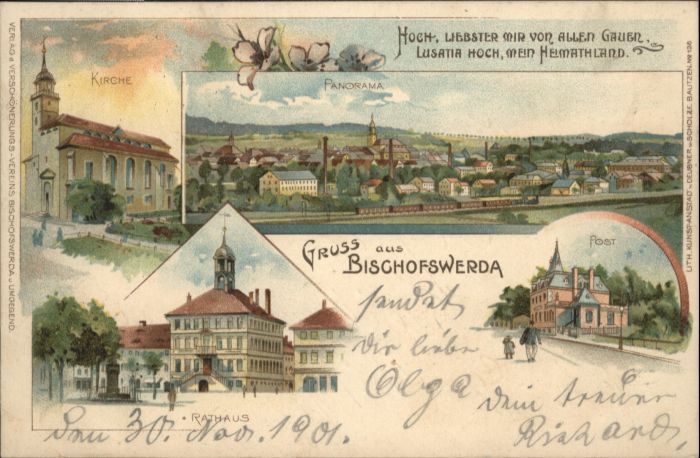 Hoch, liebster mir von allen Gauen,
Lusatia hoch, mein Heimathland.
Kirche
Panorama
Gruss aus
Bischofswerda
Post
Rathaus
sendet
Dir liebe
Olga
dein treuer
Richard,
den 30. Nov. 1901.
Verlag d. Verschönerungs-Vereins Bischofswerda u. Umgegend.
Lith. Kunstanstalt Deubner u. Scholze Bautzen No 196